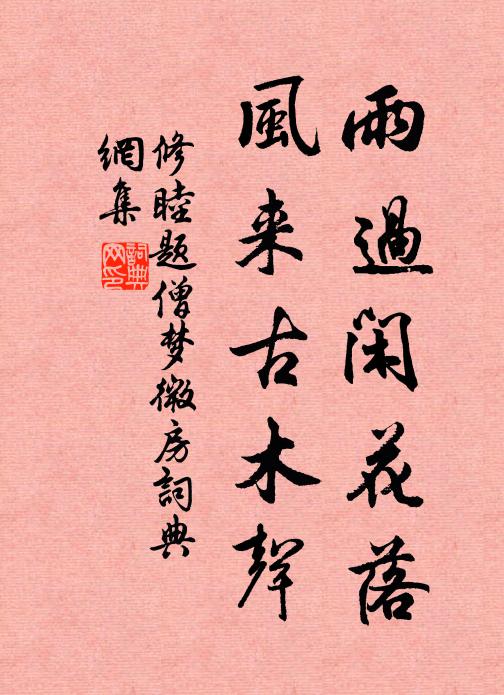 雨過閑花落
風来古木聲
修睦题僧梦微房詞典
網集
詞典网印